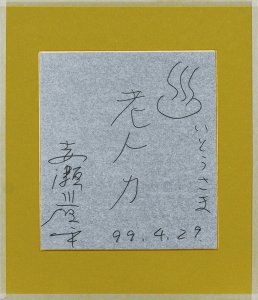 いとうさま
老人力
赤瀬川原平
99.4.29